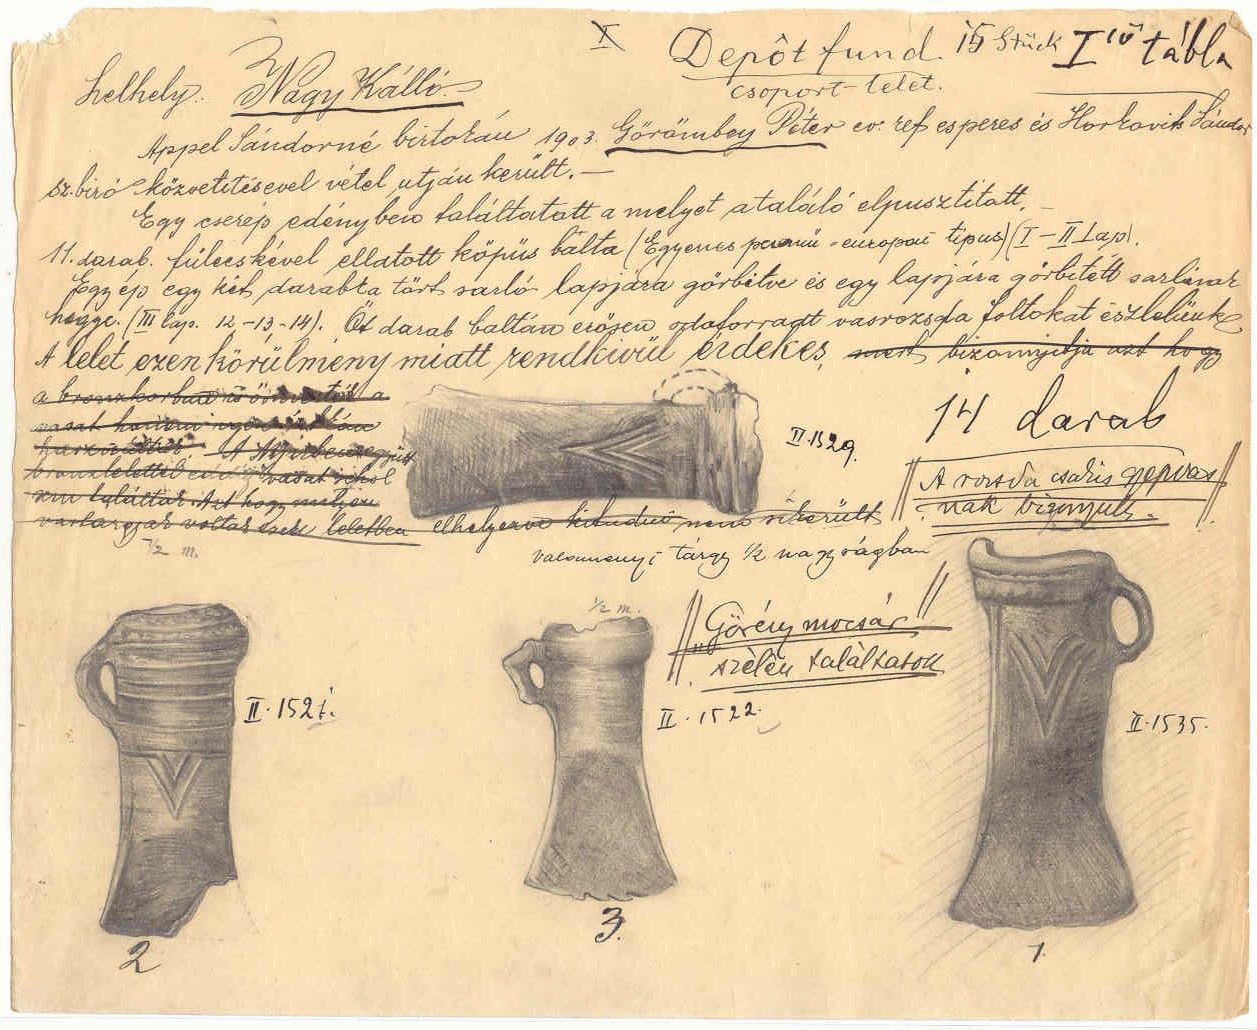 X Depôt fund. 15 Stück I ív tábla
Lelhely. Nagy Kálló.
csoport-lelet.
Appel Sándorné birtokán 1903. Görömbey Péter ev. ref esperes és Horkovits Sándor
sz.biró közvetitésevel vétel utján került.—
Egy cserép edényben találtatott a melyet a találó elpusztitott.—
11. darab. fülecskével ellatott köpüs balta (Egyenes peremü - europai tipus) (I–II Lap).
Egy ép egy két darabba tört sarló lapjára görbitve és egy lapjára görbitett sarlónak
hegye. (III lap. 12-13-14). Öt darab baltán erősen odaforradt vasrozsda foltokat észlelünk
A lelet ezen körülmény miatt rendkivül érdekes, mert bizonyitja azt hogy
a bronzkorban
vasat
A
bronzlelettel vasat sehol
sem találtak. Azt hogy milyen
vastárgyak voltak ezek leletben elhelyezve kitudni nem sikerült
II.1529.
14 darab
A rozsda csakis gyepvas
nak bizonyult.
1/2 m.
valamennyi tárgy 1/2 nagyságban
1/2 m.
"Görény mocsár"
szélén találtatott
II.1521.
II.1522.
II.1535.
2
3.
1.